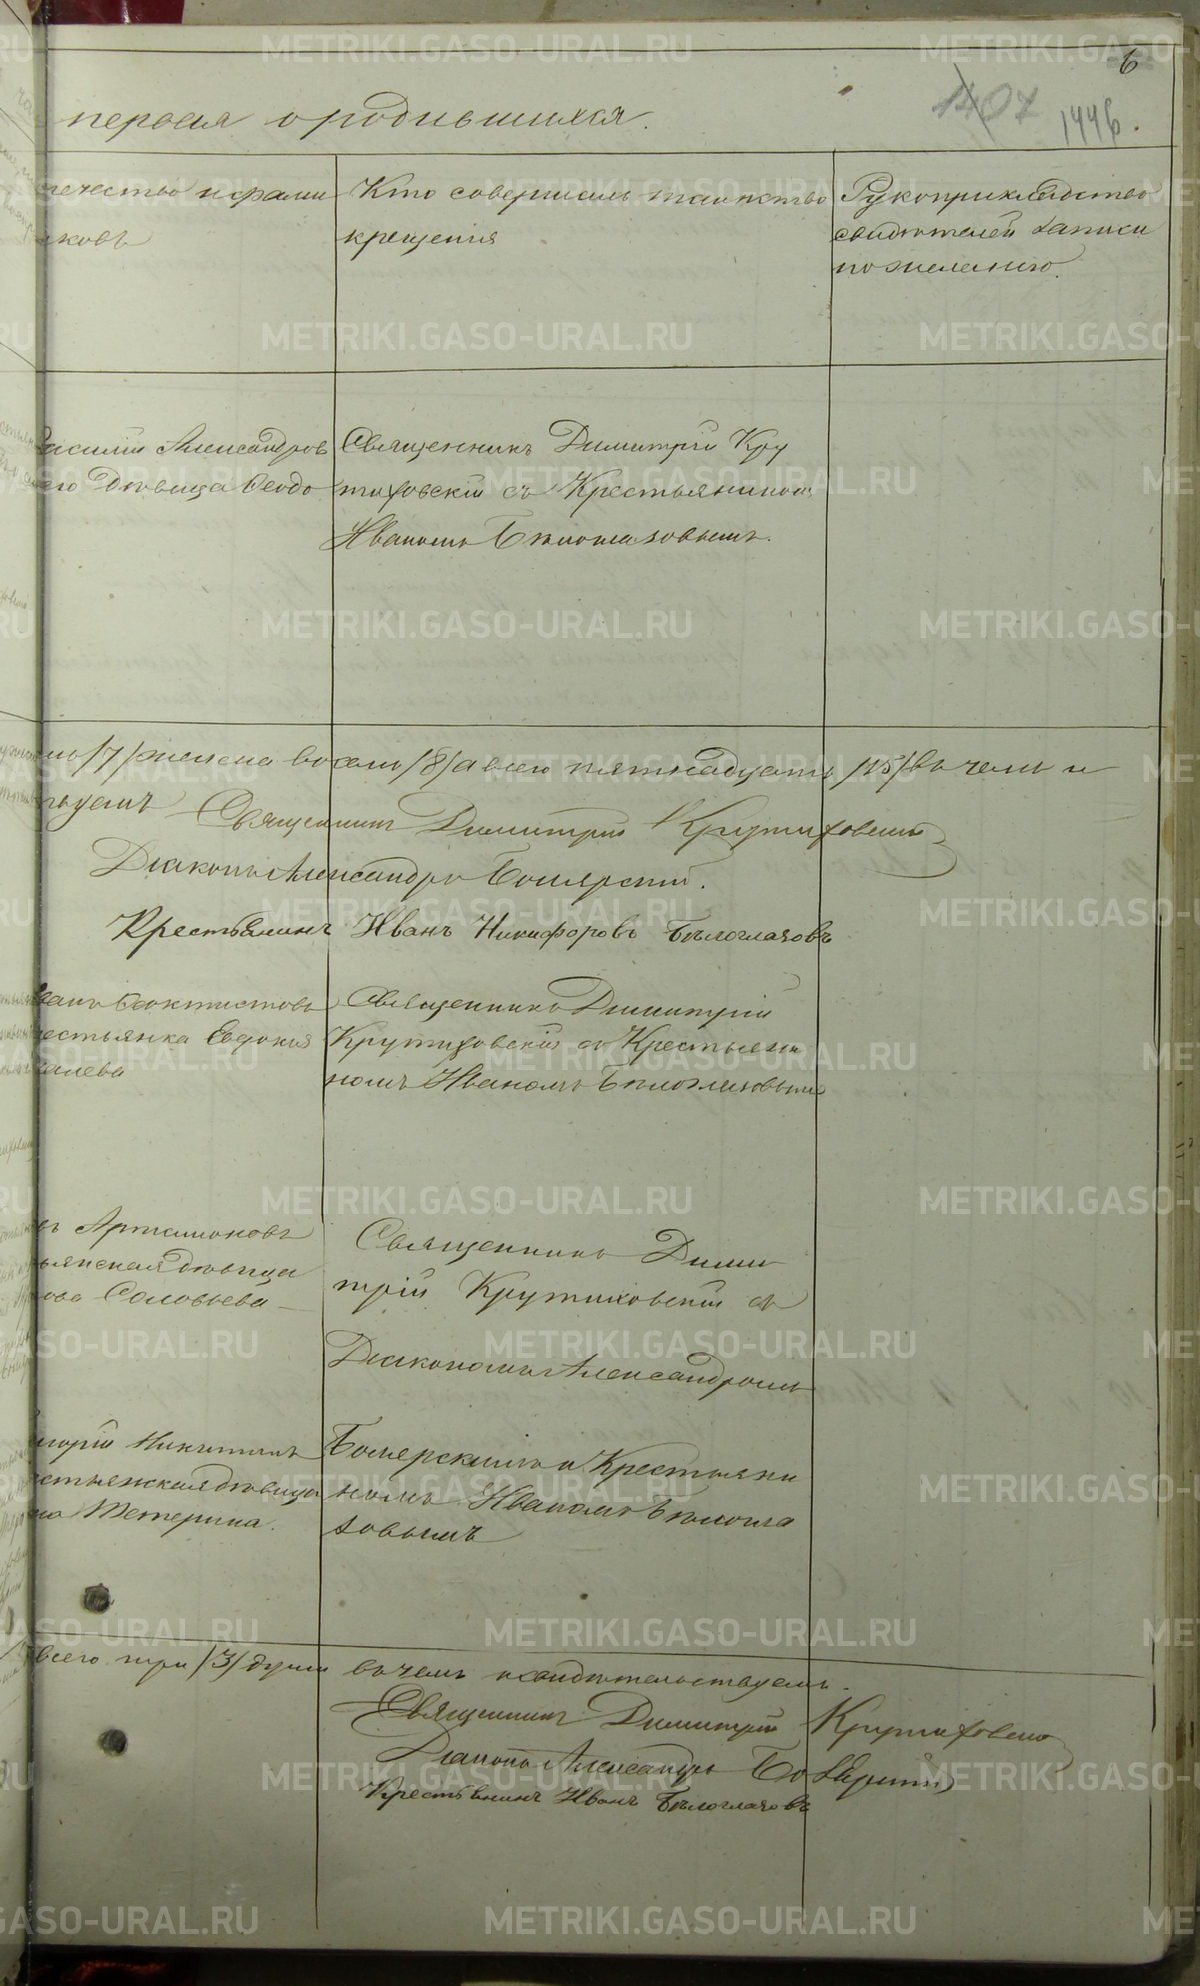 6
1407
1446.
первая о родившихся.
течество и фамил
иковъ
Кто совершалъ таинство
крещенія
Рукоприкладство
свидѣтелей записи
по желанію.
асилій Александров
его Дѣвица Ѳеодо
Священникъ Димитрій Кру
тиховскій съ Крестьяниномъ
Иваномъ Бѣлоглазовымъ.
/7/ женска восемь /8/ а всего пятнадцать /15/ въ чемъ и
Священникъ Димитрій Крутиховскій
Діаконъ Александръ Боярскій.
Крестьянинъ Иванъ Никифоровъ Бѣлоглазовъ
ванъ Ѳеоктистовъ
естьянка Евдокия
галева
Священникъ Димитрій
Крутиховскій съ Крестьяни
номъ Иваномъ Бѣлоглазовымъ
въ Артамоновъ
ьянская дѣвица
ова Соловьева
Священникъ Дими
трій Крутиховскій съ
Діакономъ Александромъ
игорій Никитинъ
стьянская дѣвица
на Тетерина.
Боярскимъ и Крестьяни
номъ Иваномъ Бѣлогла
зовымъ
всего три /3/ души въ чемъ и свидѣтельствуемъ.
Священникъ Димитрій Крутиховскій
Діаконъ Александръ Боярскій
Крестьянинъ Иванъ Бѣлоглазовъ
METRIKI.GASO-URAL.RU